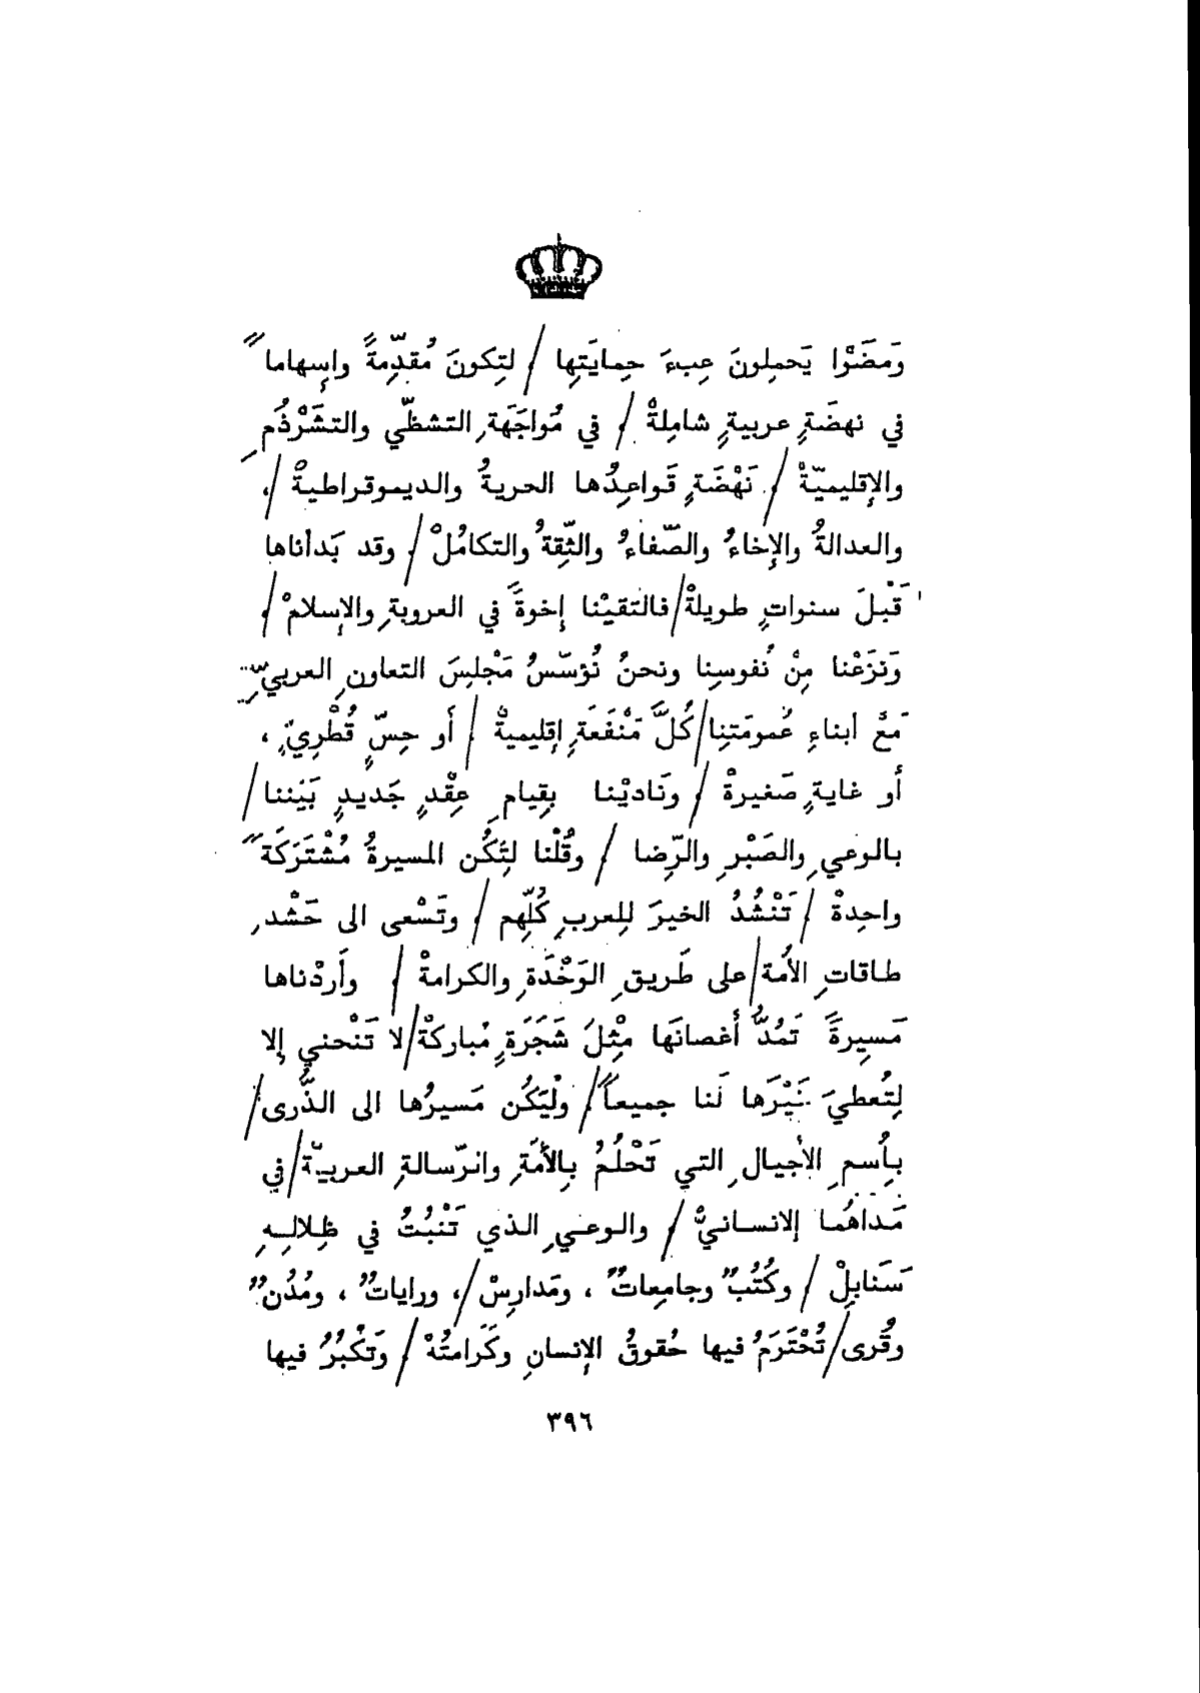 وَمضَوْا يَحمِلونَ عِبءَ حِمايَتِها / لتِكونَ مُقدِّمةً وإسِهاماً
في نهضَةٍ عربيةٍ شامِلةْ / في مُواجَهَةِ التشظّي والتشَرْذُمِ
والإقليميّةْ / نَهْضَةٍ قَواعِدُها الحريةُ والديموقراطيةْ /،
والعدالةُ والإخاءُ والصّفاءُ والثِّقةُ والتكامُلْ / وقد بَدأناها
قَبْلَ سنواتٍ طويلةْ / فالتقيْنا إخوةً في العروبةِ والإسلامْ /
وَنزَعْنا مِنْ نُفوسِنا ونحنُ نُؤسّسُ مَجْلِسَ التعاونِ العربيِّ
مَعَ أبناءِ عُمومَتنِا / كُلَّ مَنْفَعَةٍ إقليميةْ / أو حِسٍّ قُطْرِيٍّ ،
أو غايةٍ صَغيرةْ / ونَاديْنا بقِيامِ عِقْدٍ جَديدٍ بَيْننا /
بالوعيِ والصَبْرِ والرِّضا / وقُلْنا لتِكُن المسيرةُ مُشْتَرَكَةً
واحِدةْ / تَنْشُدُ الخيرَ لِلعربِ كُلِّهِم / وتَسْعى الى حَشْدِ
طاقاتِ الأمُة / على طَريقِ الوَحْدَةِ والكرامةْ / وأَردْناها
مَسيِرةً تَمُدُّ أغصانَها مِثْلَ شَجَرَةٍ مُباركةْ / لا تَنْحني إلا
لِتُعطيَ خَيْرَها لَنا جميعاً / ولْيَكُن مَسيرُها الى الذُّرى /
بأِسمِ الأجيالِ التي تَحْلُمُ بِالأمَّةِ والرّسالةِ العربيّة / في
مَداهُما الانسانيّْ / والوعيِ الذي تَنْبُتُ في ظِلالِهِ
سَنابِلْ / وكُتُبٌ وجامِعاتٌ ، ومَدارِسْ / ، وراياتٌ ، ومُدُنٌ
وقُرى / تُحْتَرَمُ فيها حُقوقُ الإنسانِ وكَرامتُهْ / وتَكْبُرُ فيها
٣٩٦